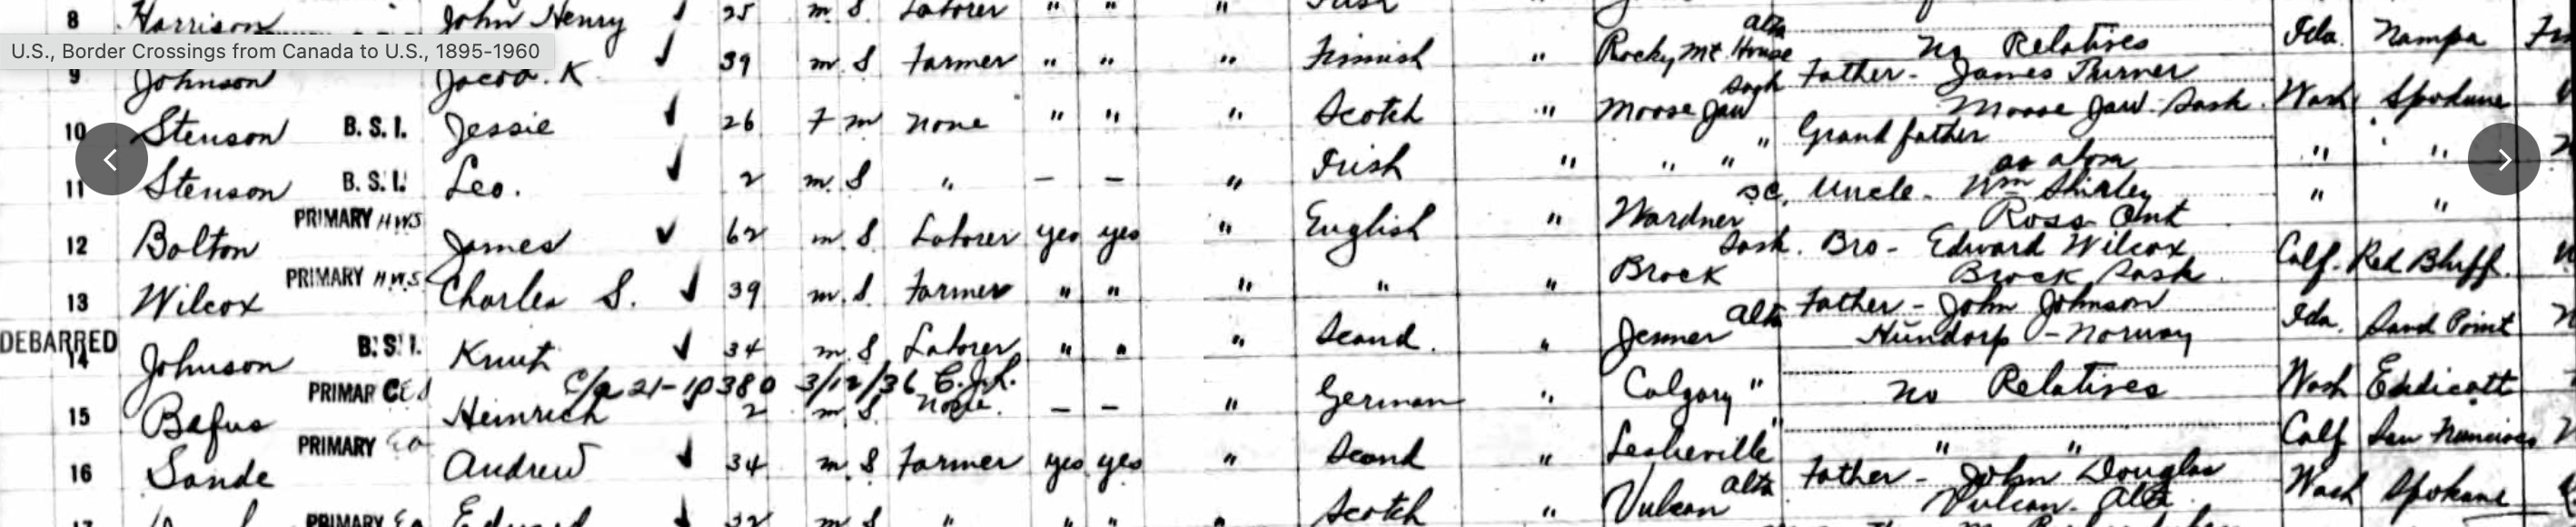 8 Harrison John Henry 25 m. S. Laborer " " " Irish
U.S., Border Crossings from Canada to U.S., 1895-1960
9 Johnson Jacob. K 39 m. S. Farmer " " " Finnish " Rocky Mt House Alta No Relatives Ida. Nampa
10 Stenson B. S. I. Jessie 26 F m none " " " Scotch " Moose Jaw Sask Father - James Turner Moose Jaw Sask. Wash Spokane
11 Stenson B. S. I. Leo. 2 m. S " - - " Irish " " " " Grand father as above " "
12 Bolton PRIMARY HWS James 62 m. S. Laborer yes yes " English " Wardner Uncle - Wm Shirley Ross Ont " "
13 Wilcox PRIMARY HWS Charles S. 39 m. S. Farmer " " " " " Brock Sask. Bro - Edward Wilcox Brock Sask. Calf. Red Bluff.
DEBARRED
14 Johnson B. S. I. Knut 34 m. S Laborer " " " Scand. " Jenner Alta Father - John Johnson Hundorp - Norway Ida. Sand Point
C/a 21-10380 3/12/36
15 Bafus PRIMARY Heinrich 2 m. S. none. - - " German " Calgary " No Relatives Wash Endicott
16 Sande PRIMARY Andrew 34 m. S Farmer yes yes " Scand " Lesheville " " " Calf San Francisco
PRIMARY Edward 32 m S " " " " Scotch " Vulcan Alta Father - John Douglas Vulcan. Alta Wash Spokane